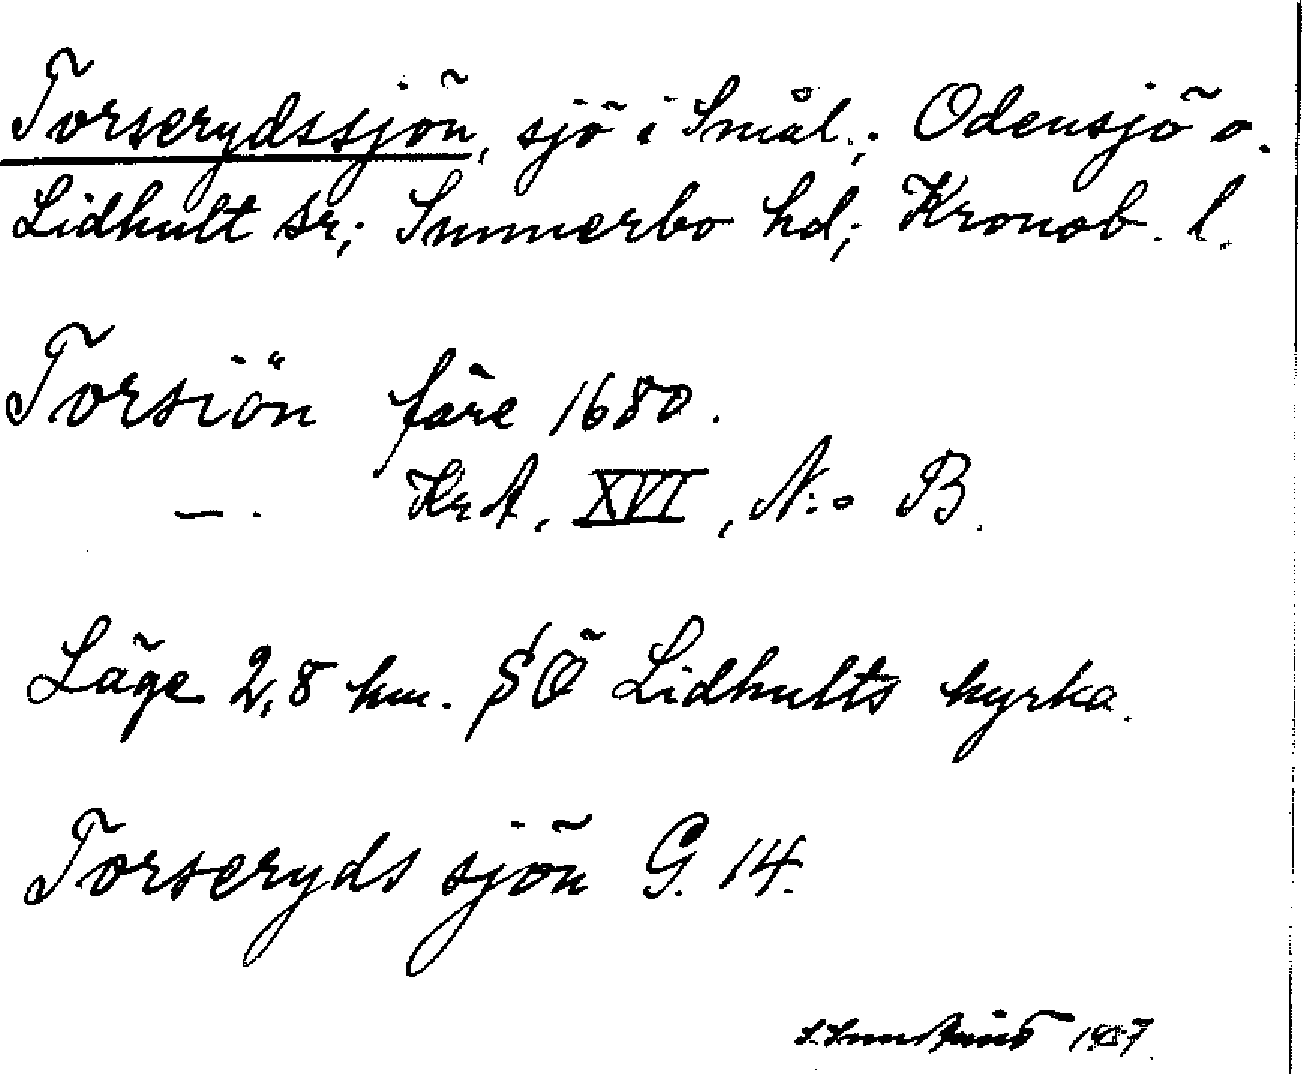 Torserydssjön, sjö i Smål.; Odensjö o.
Lidhult sr; Sunnerbo hd; Kronob. l.
Torsiön före 1680.
—. KrA, XVI, N:o B.
Läge 2,8 km. SÖ Lidhults kyrka.
Torseryds sjön G. 14.